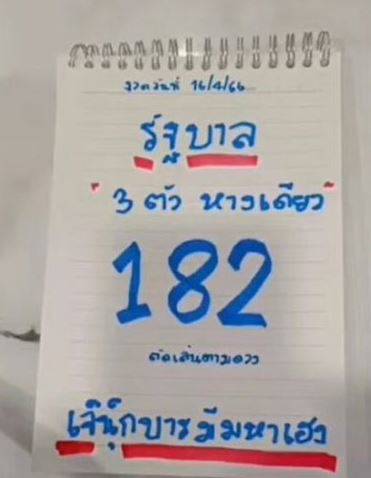 งวดวันที่ 16/4/66
รัฐบาล
"3 ตัว หางเดียว"
182
ตัดเล่นตามดวง
เจ๊นุ๊กบารมีมหาเฮง